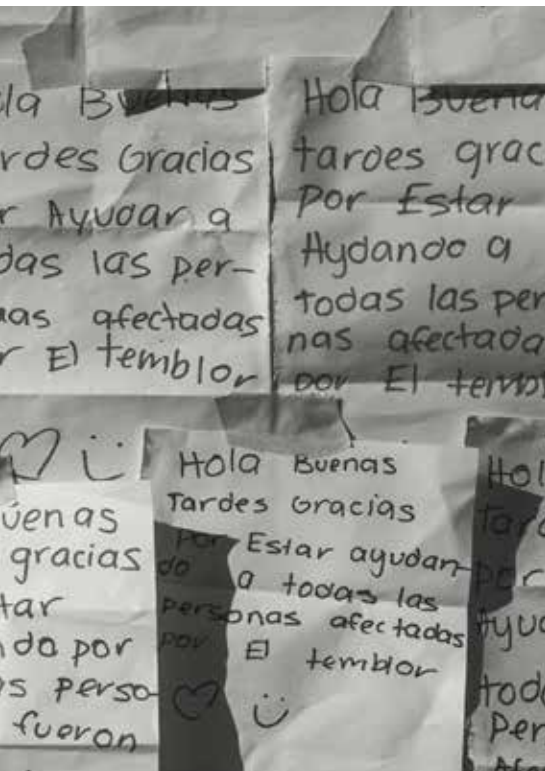 la Buenas
rdes Gracias
r Ayudar a
das las per-
nas afectadas
r El temblor
Hola Buena
tardes grac
Por Estar
Aydando a
todas las per
nas afectada
por El temb
úenas
gracias
tar
ndo por
s perso-
fueron
Hola Buenas
Tardes Gracias
Por Estar ayudan-
do a todas las
personas afectadas
por El temblor
Hol
Tard
por
Ayud
toda
Per